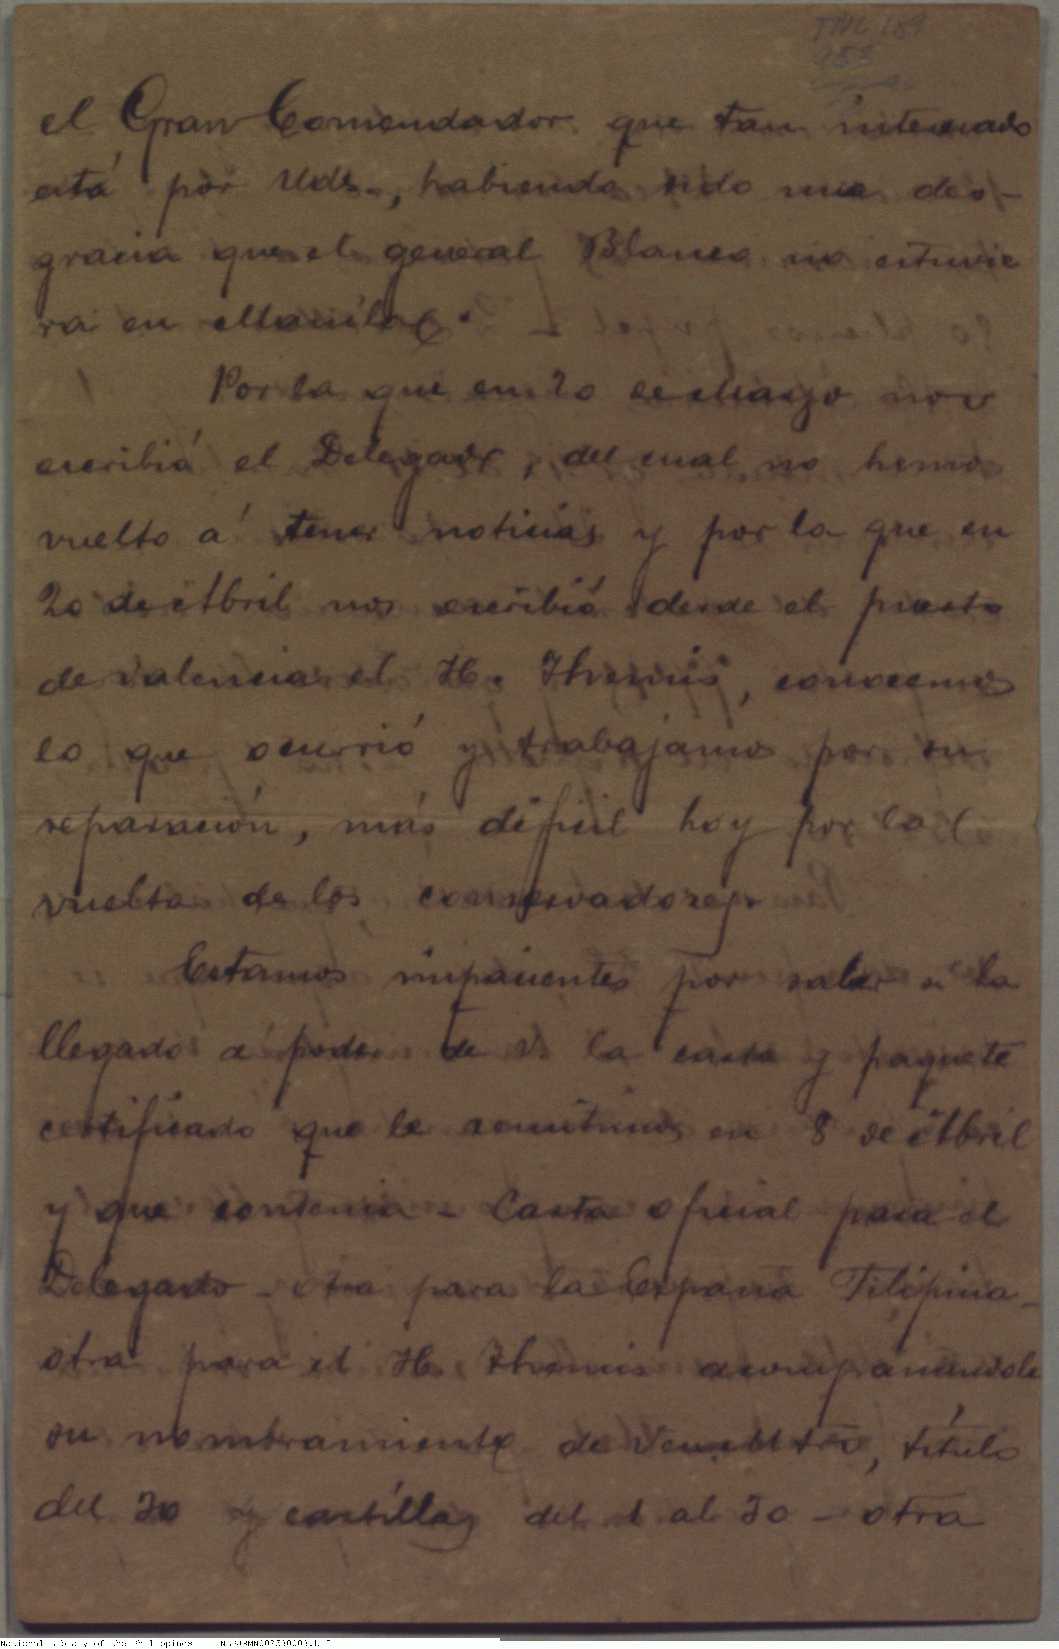 el Gran Comendador que tan interesado
está por Uds., habiendo sido una des-
gracia que el general Blanco no estuvie
ra en Manila.
Por la que en 20 de Marzo nos
escribió el Delegado, del cual no hemos
vuelto á tener noticias y por la que en
20 de Abril nos escribió desde el puerto
de Valencia el H. Themis, conocemos
lo que ocurrió y trabajamos por su
reparación, más dificil hoy por la
vuelta de los conservadores.
Estamos impacientes por saber si ha
llegado á poder de V. la carta y paquete
certificado que le remitimos en 8 de Abril
y que contenia - Carta oficial para el
Delegado - otra para la España Filipina -
otra para el H. Themis acompañandole
su nombramiento de Ven, titulo
del 30 y cartillas del 1 al 30 - otra
National Library of the Philippines